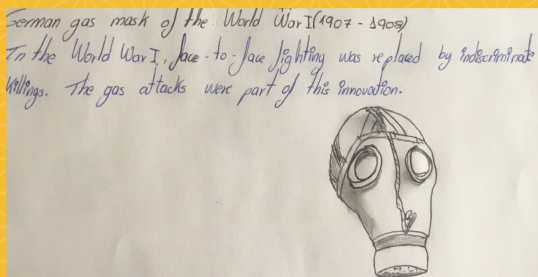 German gas mask of the World War I (1907 - 1908)
In the World War I, face-to-face fighting was replaced by indiscriminate
killings. The gas attacks were part of this innovation.